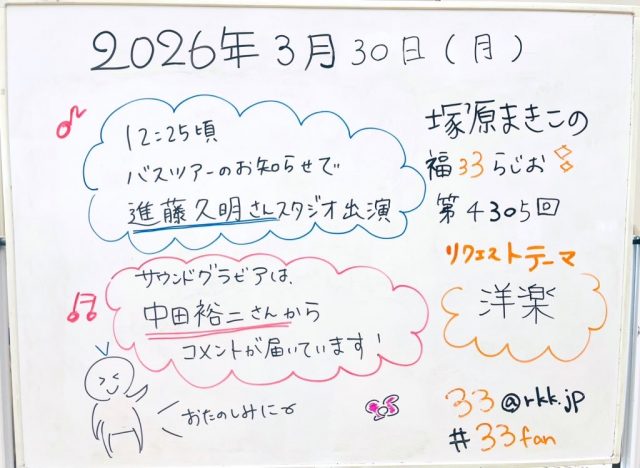 2026年3月30日(月)
12:25頃
バスツアーのお知らせで
進藤久明さんスタジオ出演
サウンドグラビアは、
中田裕二さんから
コメントが届いています!
おたのしみに〜
塚原まきこの
福33らじお
第4305回
リクエストテーマ
洋楽
33@rkk.jp
#33fan